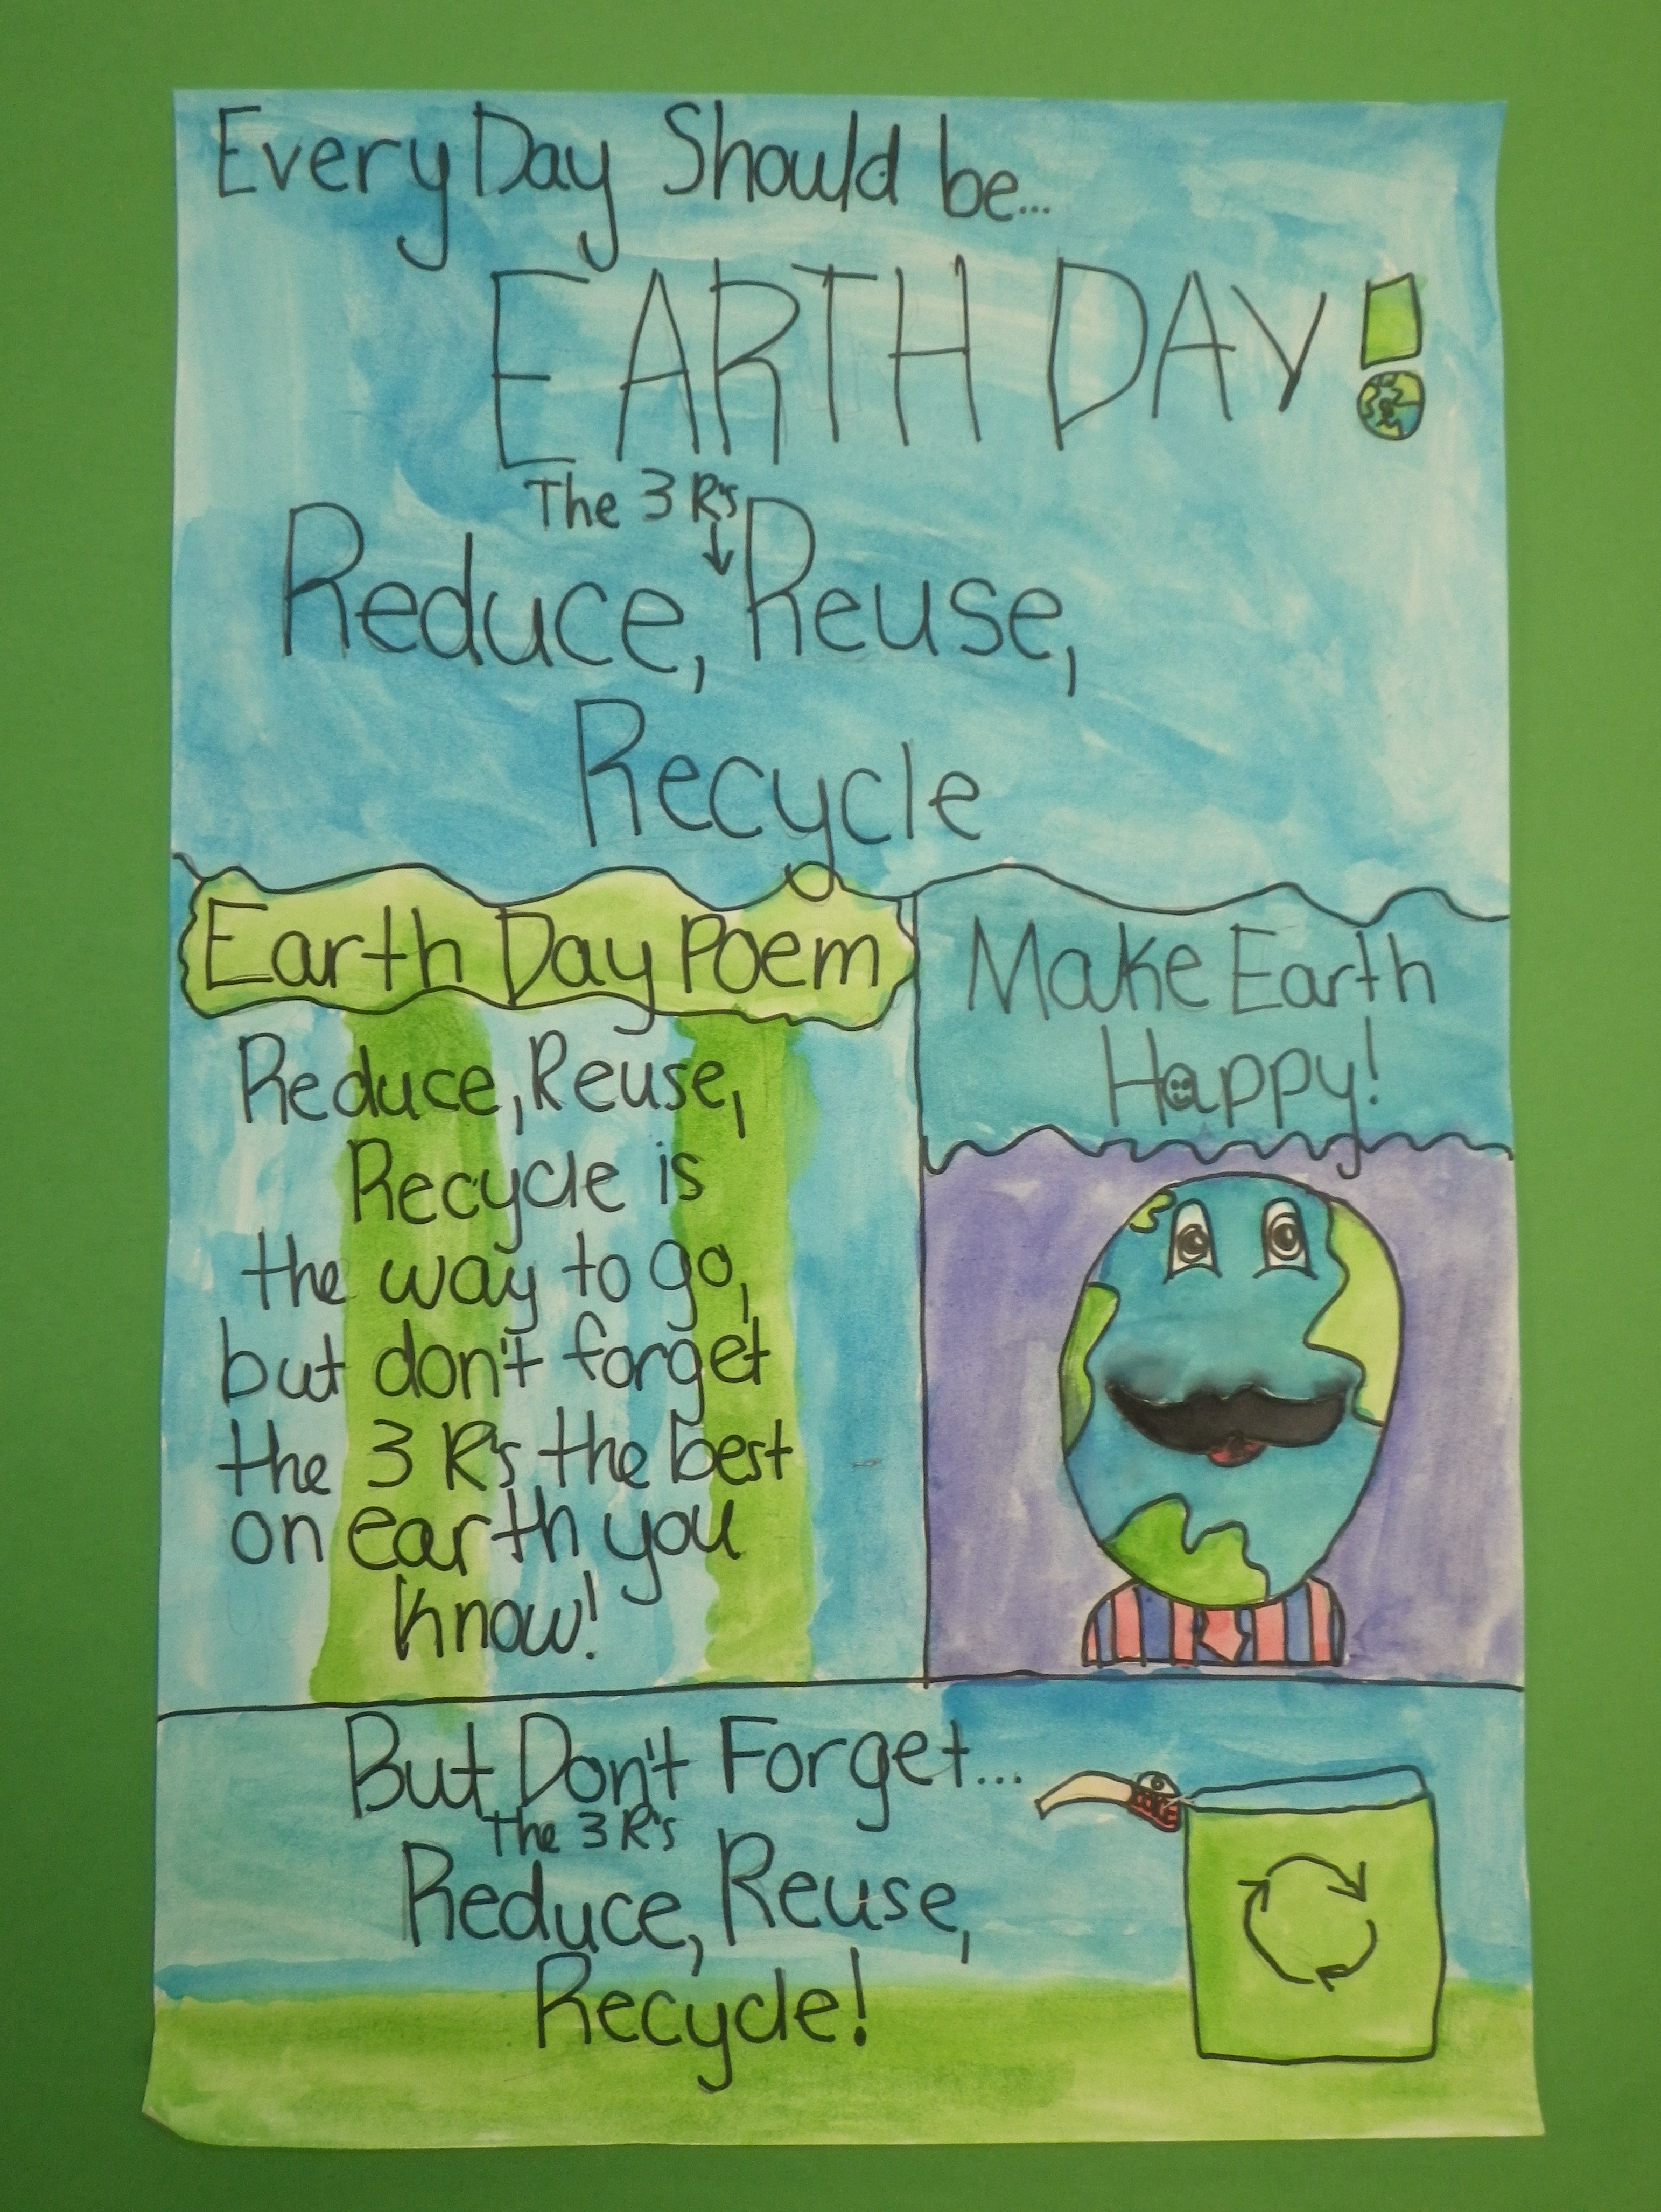 Every Day Should be...
EARTH DAY!
The 3 R's
Reduce, Reuse,
Recycle
Earth Day Poem
Reduce, Reuse,
Recycle is
the way to go,
but don't forget
the 3 R's the best
on earth you
know!
Make Earth
Happy!
But Don't Forget...
The 3 R's
Reduce, Reuse,
Recycle!